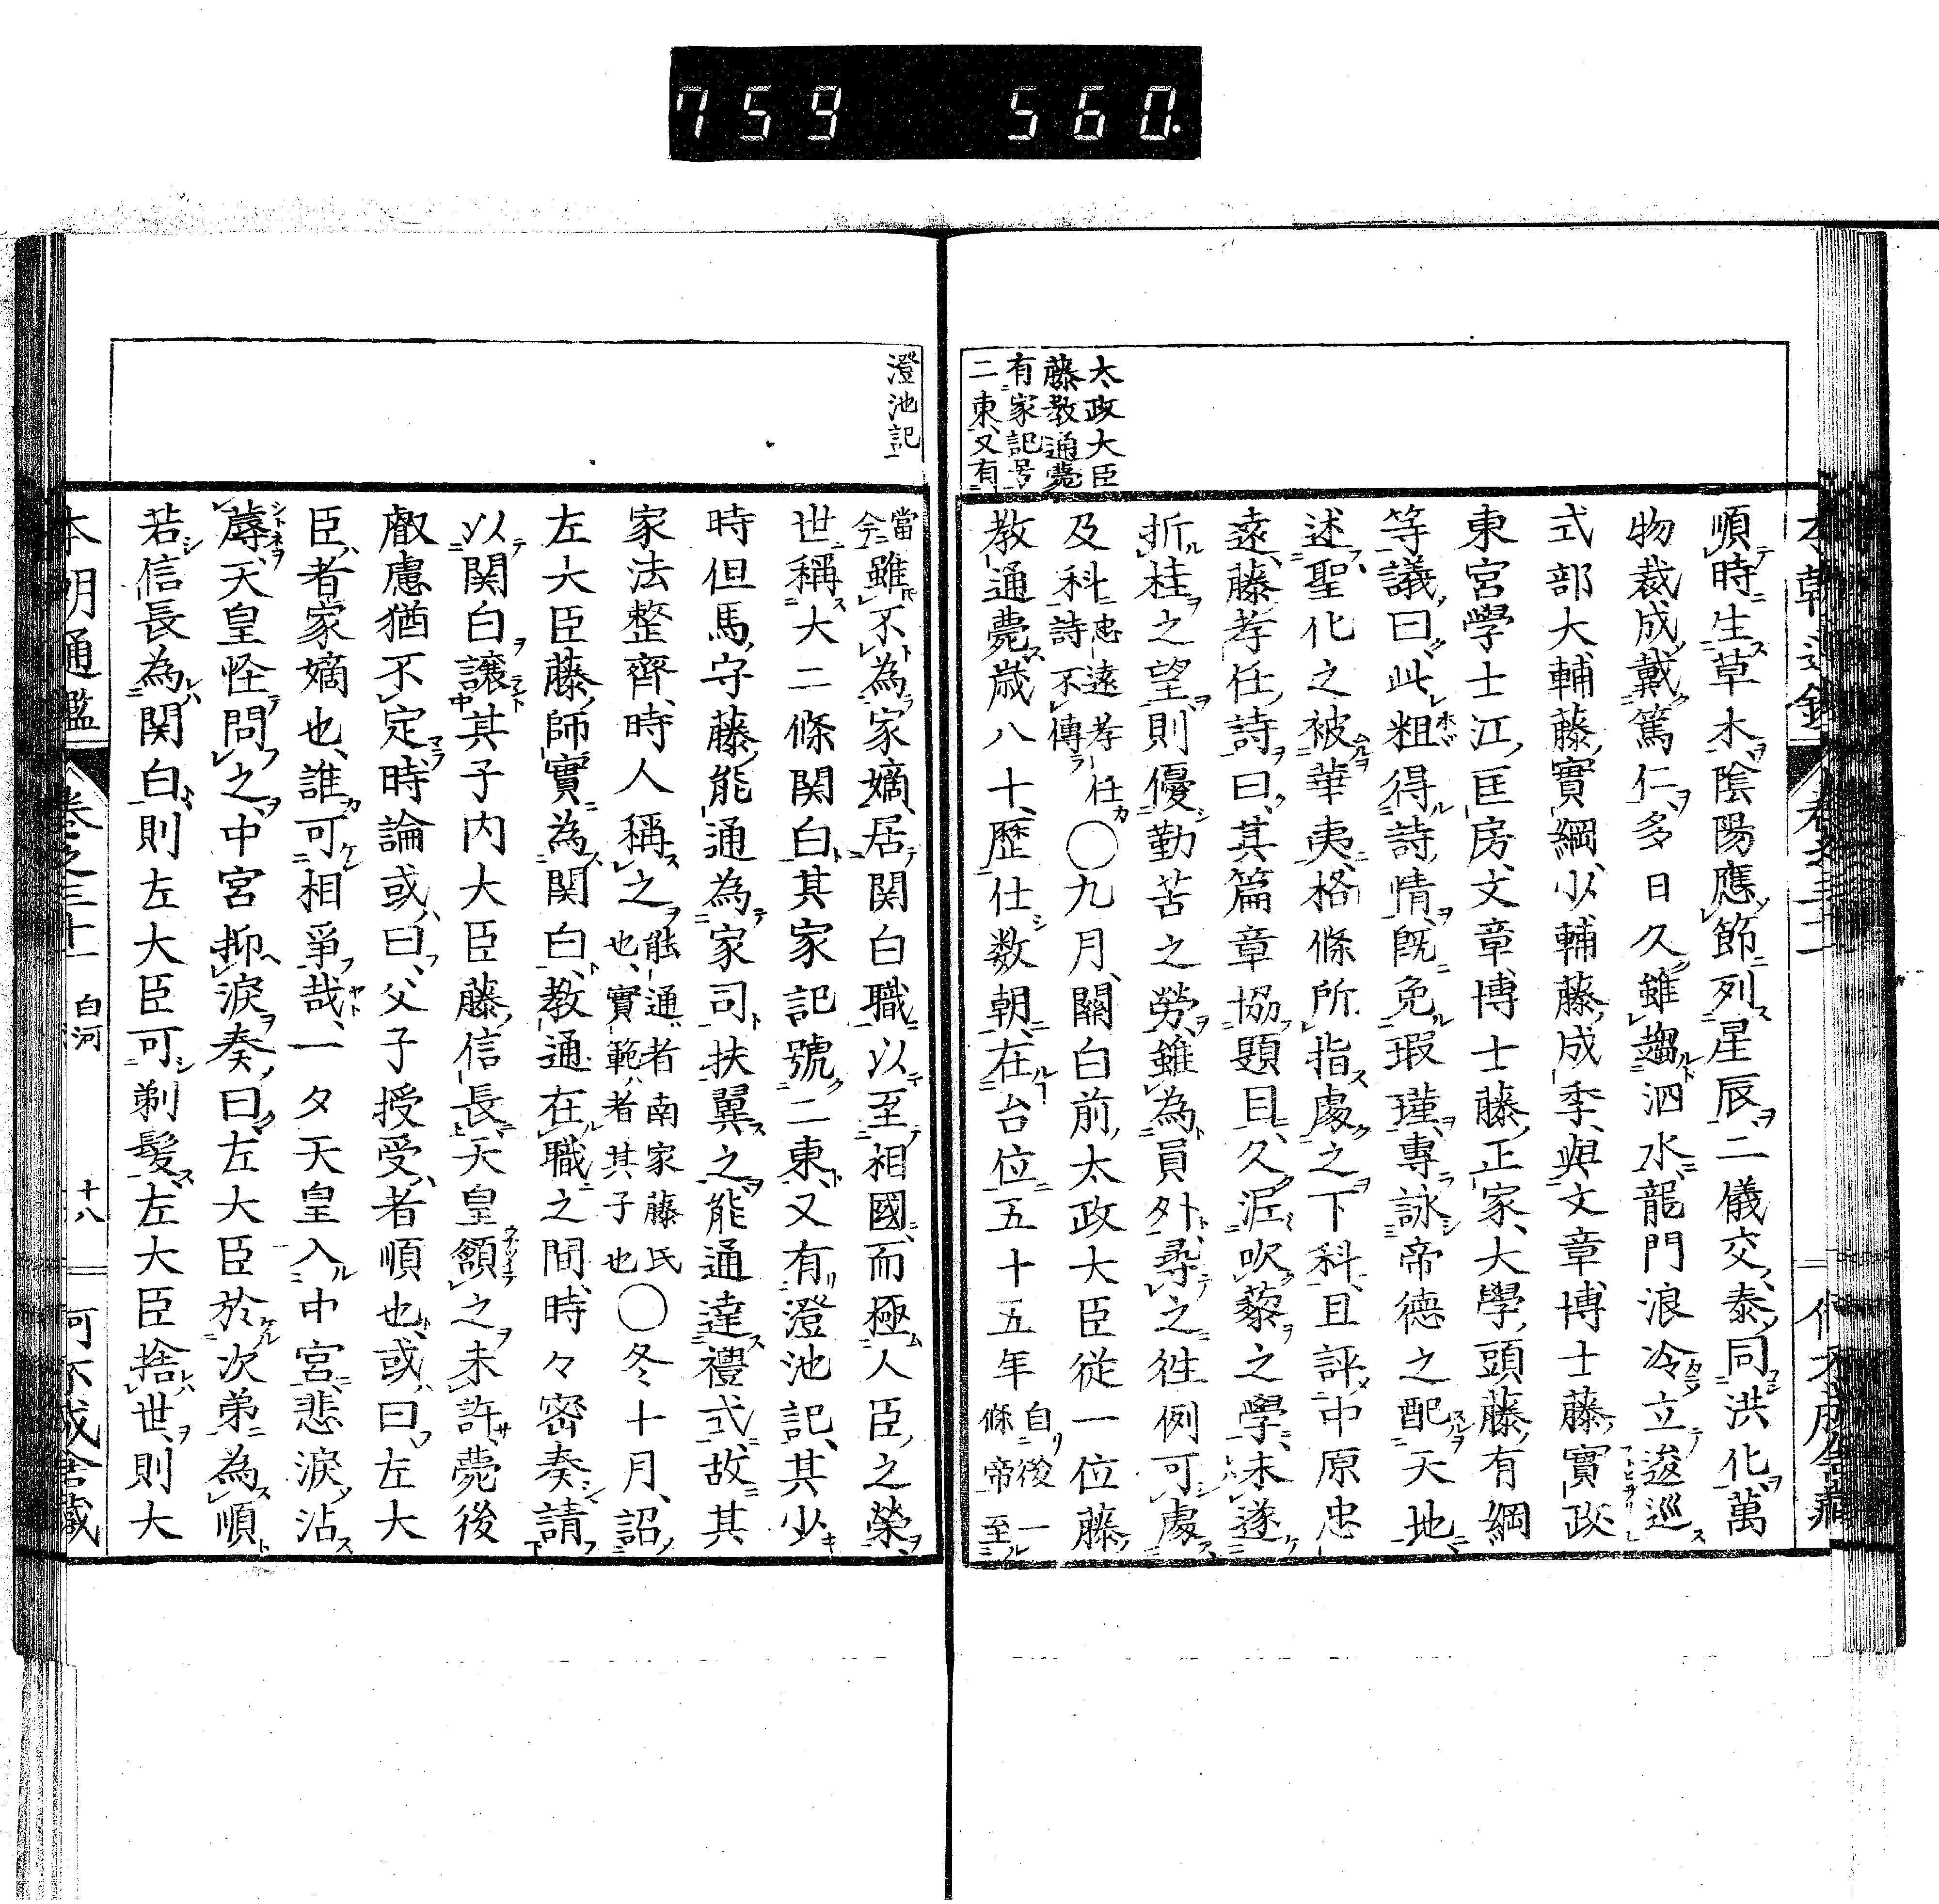 759 560.
太政大臣
藤教通薨
有家記号
二東又有
順時生草木陰陽應節列星辰二儀交泰同洪化萬
物裁成戴篤仁多日久雖趨泗水龍門浪冷立逡巡
式部大輔藤實綱少輔藤成季與文章博士藤實政
東宮學士江匡房文章博士藤正家大學頭藤有綱
等議曰此粗得詩情既免瑕瑾專詠帝德之配天地
述聖化之被華夷格條所指處之下科且評中原忠
遠藤孝任詩曰其篇章協題目久泥吹藜之學未遂
折桂之望則優勤苦之勞雖為員外尋之往例可處
及科忠遠孝任詩不傳〇九月關白前太政大臣從一位藤
教通薨歲八十歷仕数朝在台位五十五年自後一條帝至
澄池記
當今雖不為家嫡居関白職以至相國而極人臣之榮
世稱大二條関白其家記號二東又有澄池記其少
時但馬守藤能通為家司扶翼之能通達禮式故其
家法整齊時人稱之能通者南家藤氏也實範者其子也〇冬十月詔
左大臣藤師實為関白教通在職之間時々密奏請
以関白讓其子內大臣藤信長天皇頷之未許薨後
叡慮猶不定時論或曰父子授受者順也或曰左大
臣者家嫡也誰可相爭哉一夕天皇入中宮悲淚沾
蓐天皇怪問之中宮抑淚奏曰左大臣於次弟為順
若信長為関白則左大臣可剃髪左大臣捨世則大
本朝通鑑 卷之三十一 白河 十八